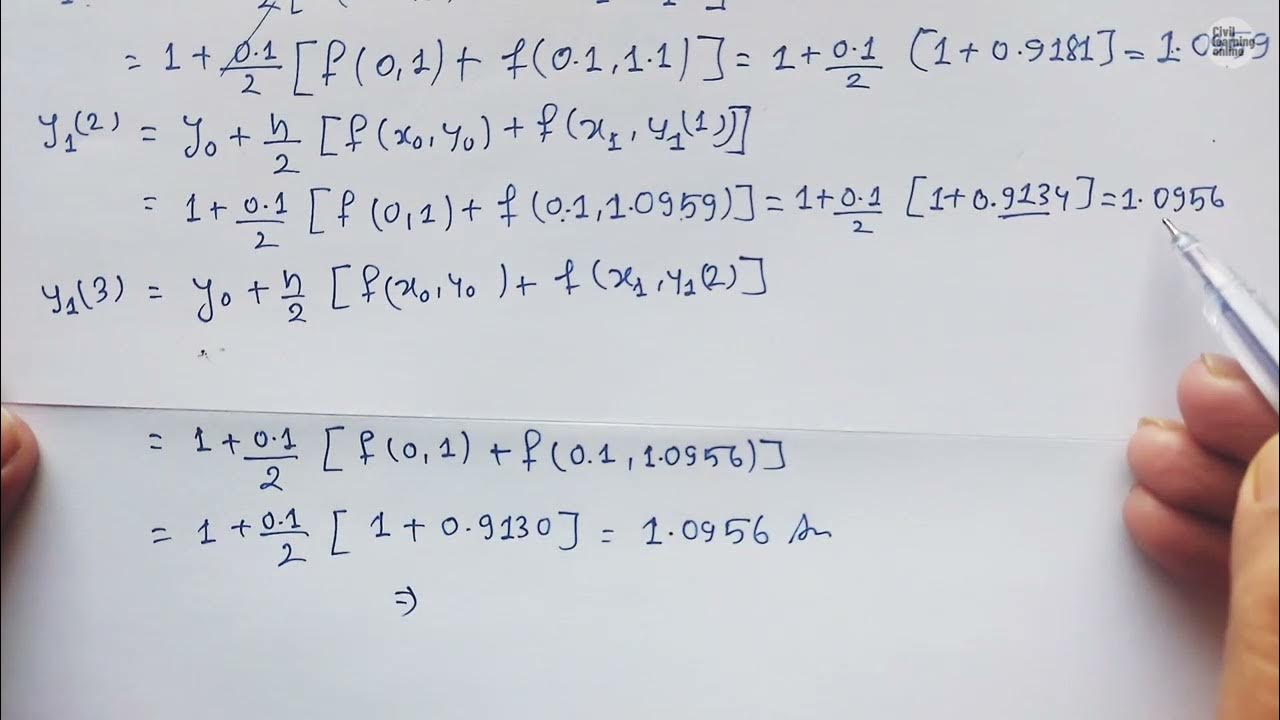 = 1 + 0.1/2 [f(0,1) + f(0.1,1.1)] = 1 + 0.1/2 [1 + 0.9181] = 1.0959
Civil learning online
y₁(2) = y₀ + h/2 [f(x₀,y₀) + f(x₁,y₁(1))]
= 1 + 0.1/2 [f(0,1) + f(0.1,1.0959)] = 1 + 0.1/2 [1 + 0.9134] = 1.0956
y₁(3) = y₀ + h/2 [f(x₀,y₀) + f(x₁,y₁(2)]
= 1 + 0.1/2 [f(0,1) + f(0.1,1.0956)]
= 1 + 0.1/2 [1 + 0.9130] = 1.0956 An
⇒